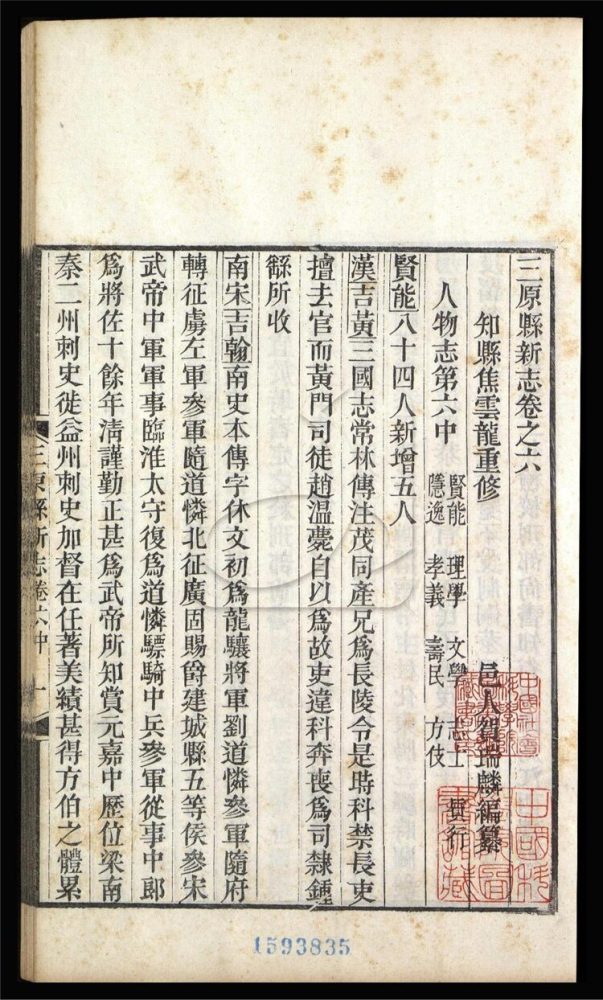 三原縣新志卷之六
知縣焦雲龍重修
邑人賀瑞麟編纂
人物志第六中
賢能 理學 文學 志士 實行
隱逸 孝義 壽民 方伎
賢能八十四人新增五人
漢吉黃三國志常林傳注茂同產兄爲長陵令是時科禁長吏
擅去官而黃門司徒趙溫薨自以爲故吏違科奔喪爲司隸鍾
繇所收
南宋吉翰南史本傳字休文初爲龍驤將軍劉道憐參軍隨府
轉征虜左軍參軍隨道憐北征廣固賜爵建城縣五等侯參宋
武帝中軍軍事臨淮太守復爲道憐驃騎中兵參軍從事中郎
爲將佐十餘年淸謹勤正甚爲武帝所知賞元嘉中歷位梁南
秦二州刺史徙益州刺史加督在任著美績甚得方伯之體累
三原縣新志卷六中 一
1593835